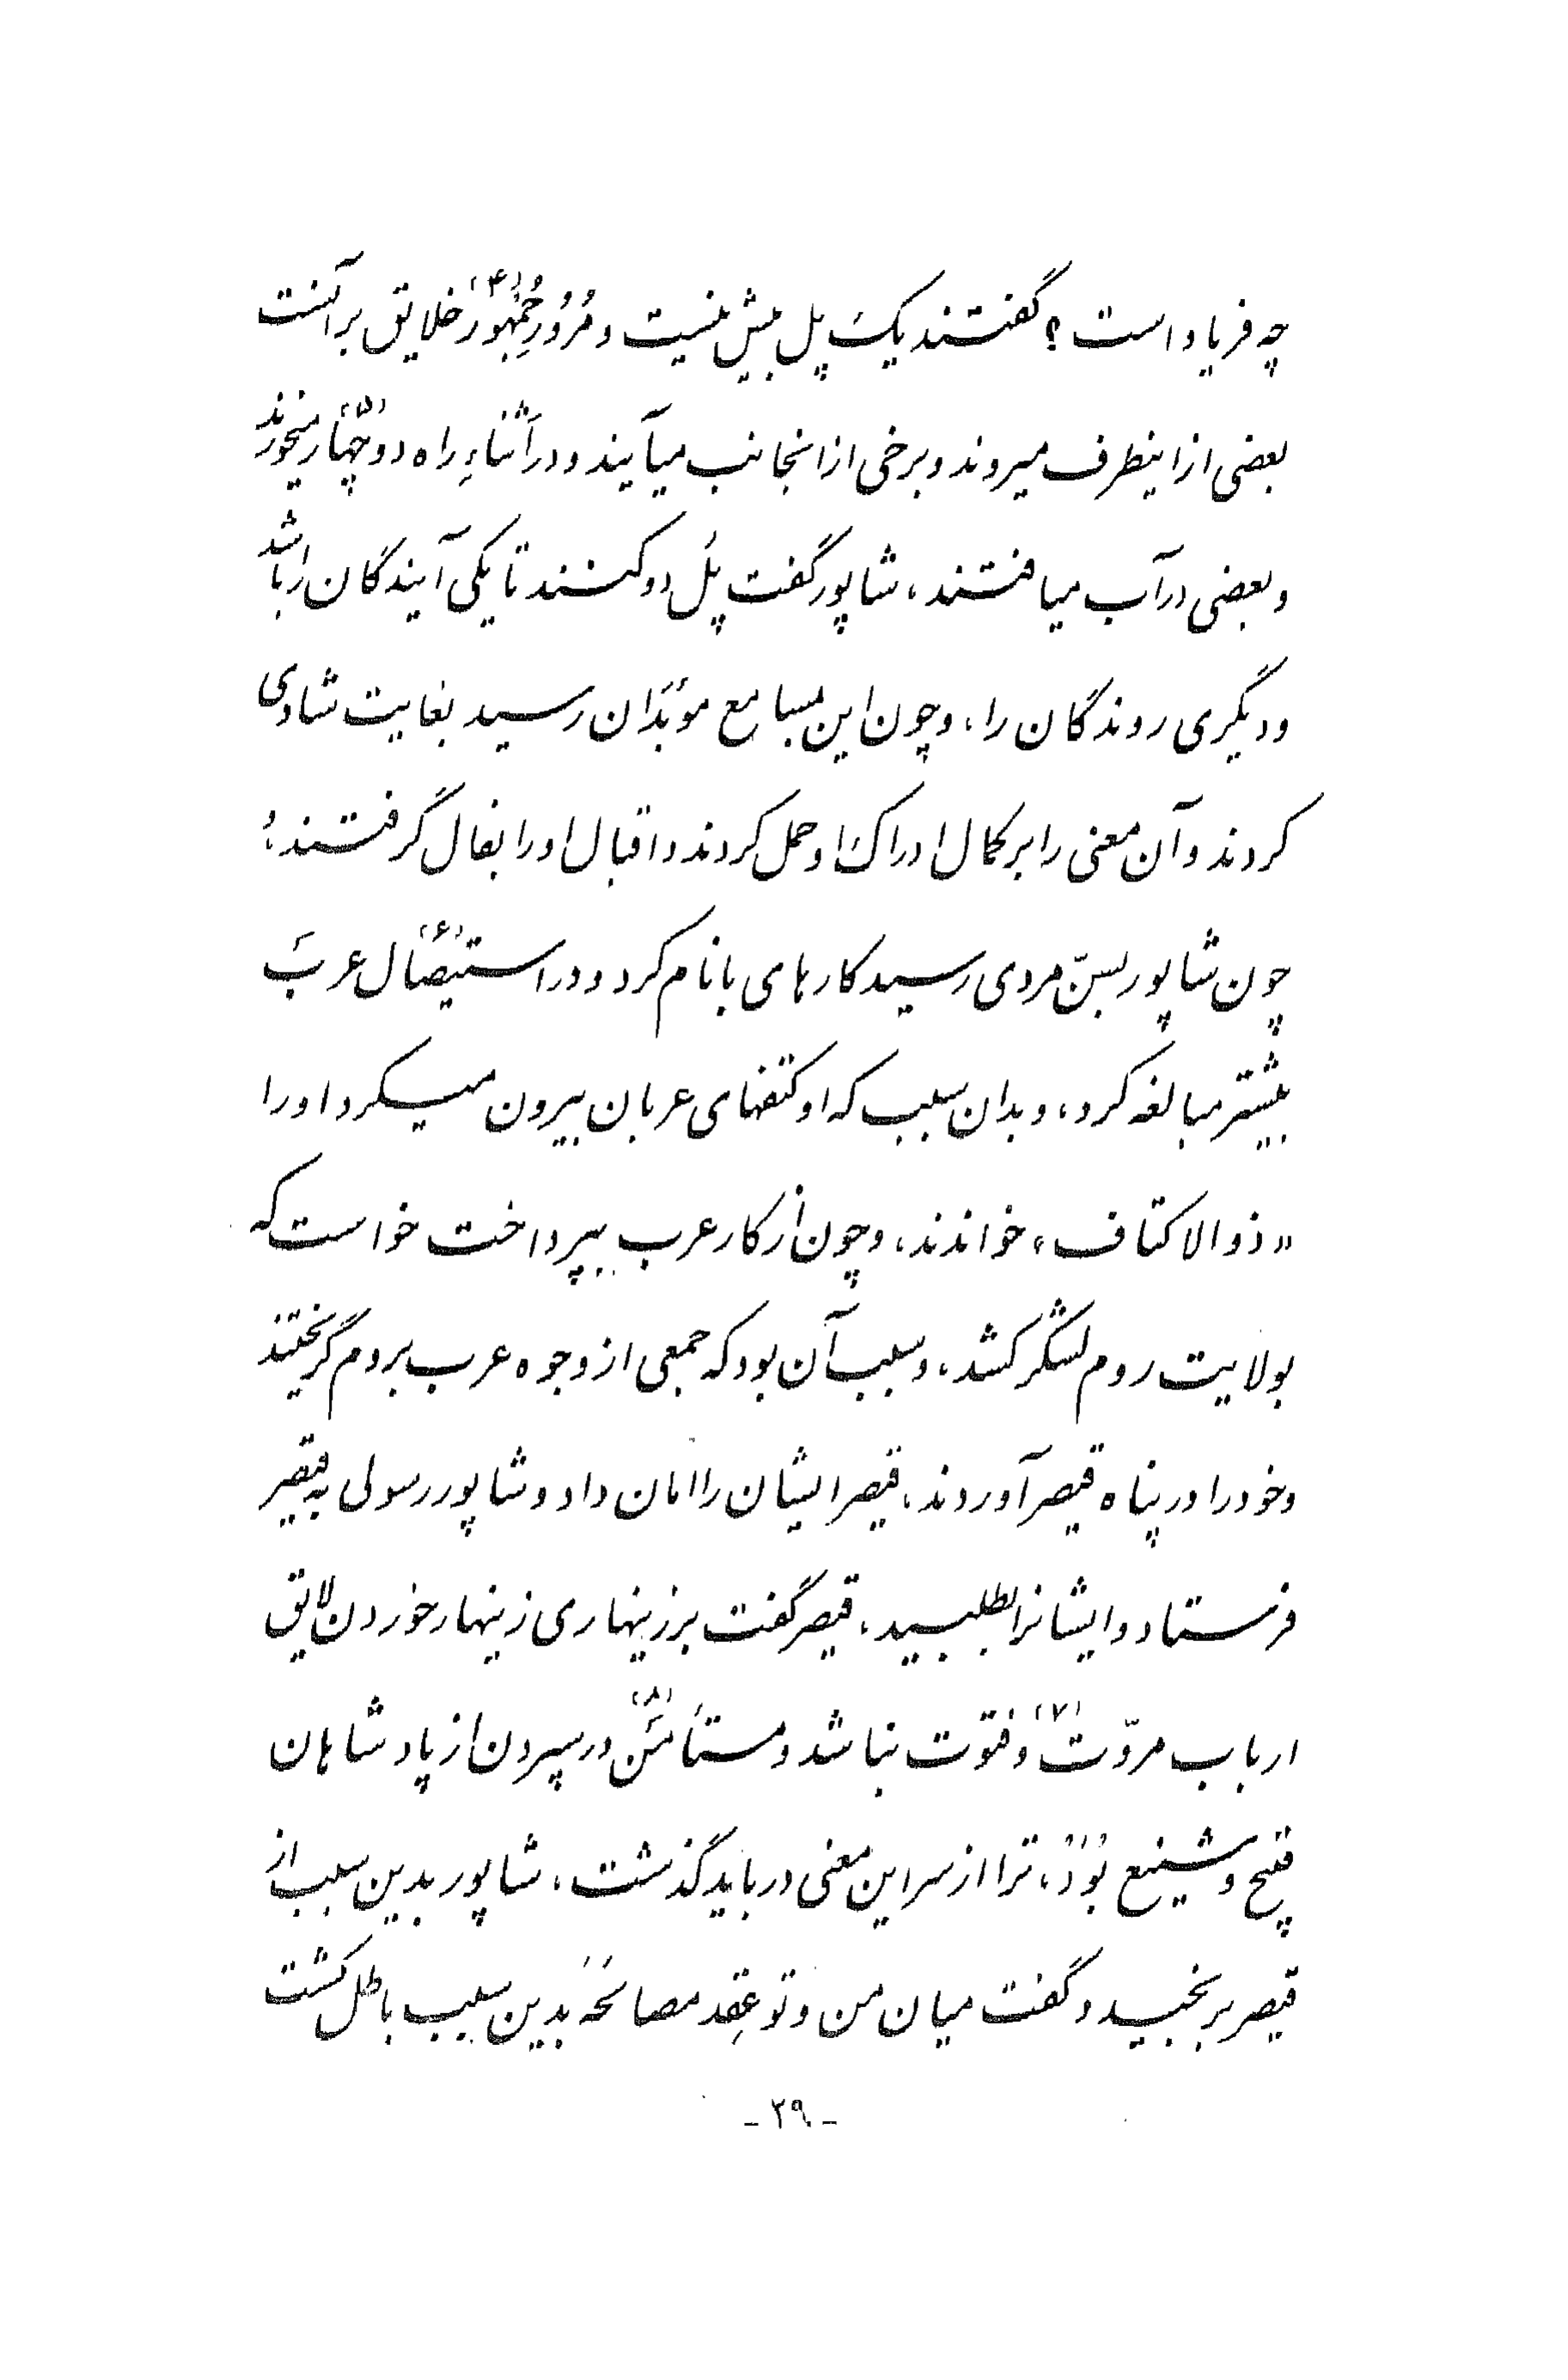 چه فریاد است؟ گفتند یک پل بیش نیست و مُرُورِ جُمْهُور(۴) خلایق بر آنست
بعضی از اینطرف میروند و برخی از انجانب میآیند و در اَثناءِ راه دوچهار(۵) میخورند
و بعضی در آب میافتند، شاپور گفت پُل دو کنند تا یکی آیندگان را باشد
و دیگری روندگان را، و چون این بمسامع موبَدان رسید بغایت شادی
کردند و آن معنی را بر کمال ادراک او حمل کردند و اقبال او را بفال گرفتند؛
چون شاپور بسنّ مردی رسید کارهای بانام کرد و در استیصال(۶) عرب
بیشتر مبالغه کرد، و بدان سبب که او کتفهای عربان بیرون میکرد او را
«ذوالاکتاف» خواندند، و چون از کار عرب بپرداخت خواست که
بولایت روم لشگر کشد، و سبب آن بود که جمعی از وجوه عرب بروم گریختند
و خود را در پناه قیصر آوردند، قیصر ایشان را امان داد و شاپور رسولی به قیصر
فرستاد و ایشانرا بطلبید، قیصر گفت بر زینهاری زینهار خوردن لایق
ارباب مروّت(۷) و فتوّت نباشد و مستأمَن(۸) در سپردن از پادشاهان
قبیح و شنیع بُوَد، ترا از سر این معنی در باید گذشت، شاپور بدین سبب از
قیصر برنجید و گفت میان من و تو عقِد مصالَحَه بدین سبب باطل گشت
- ۲۹ -